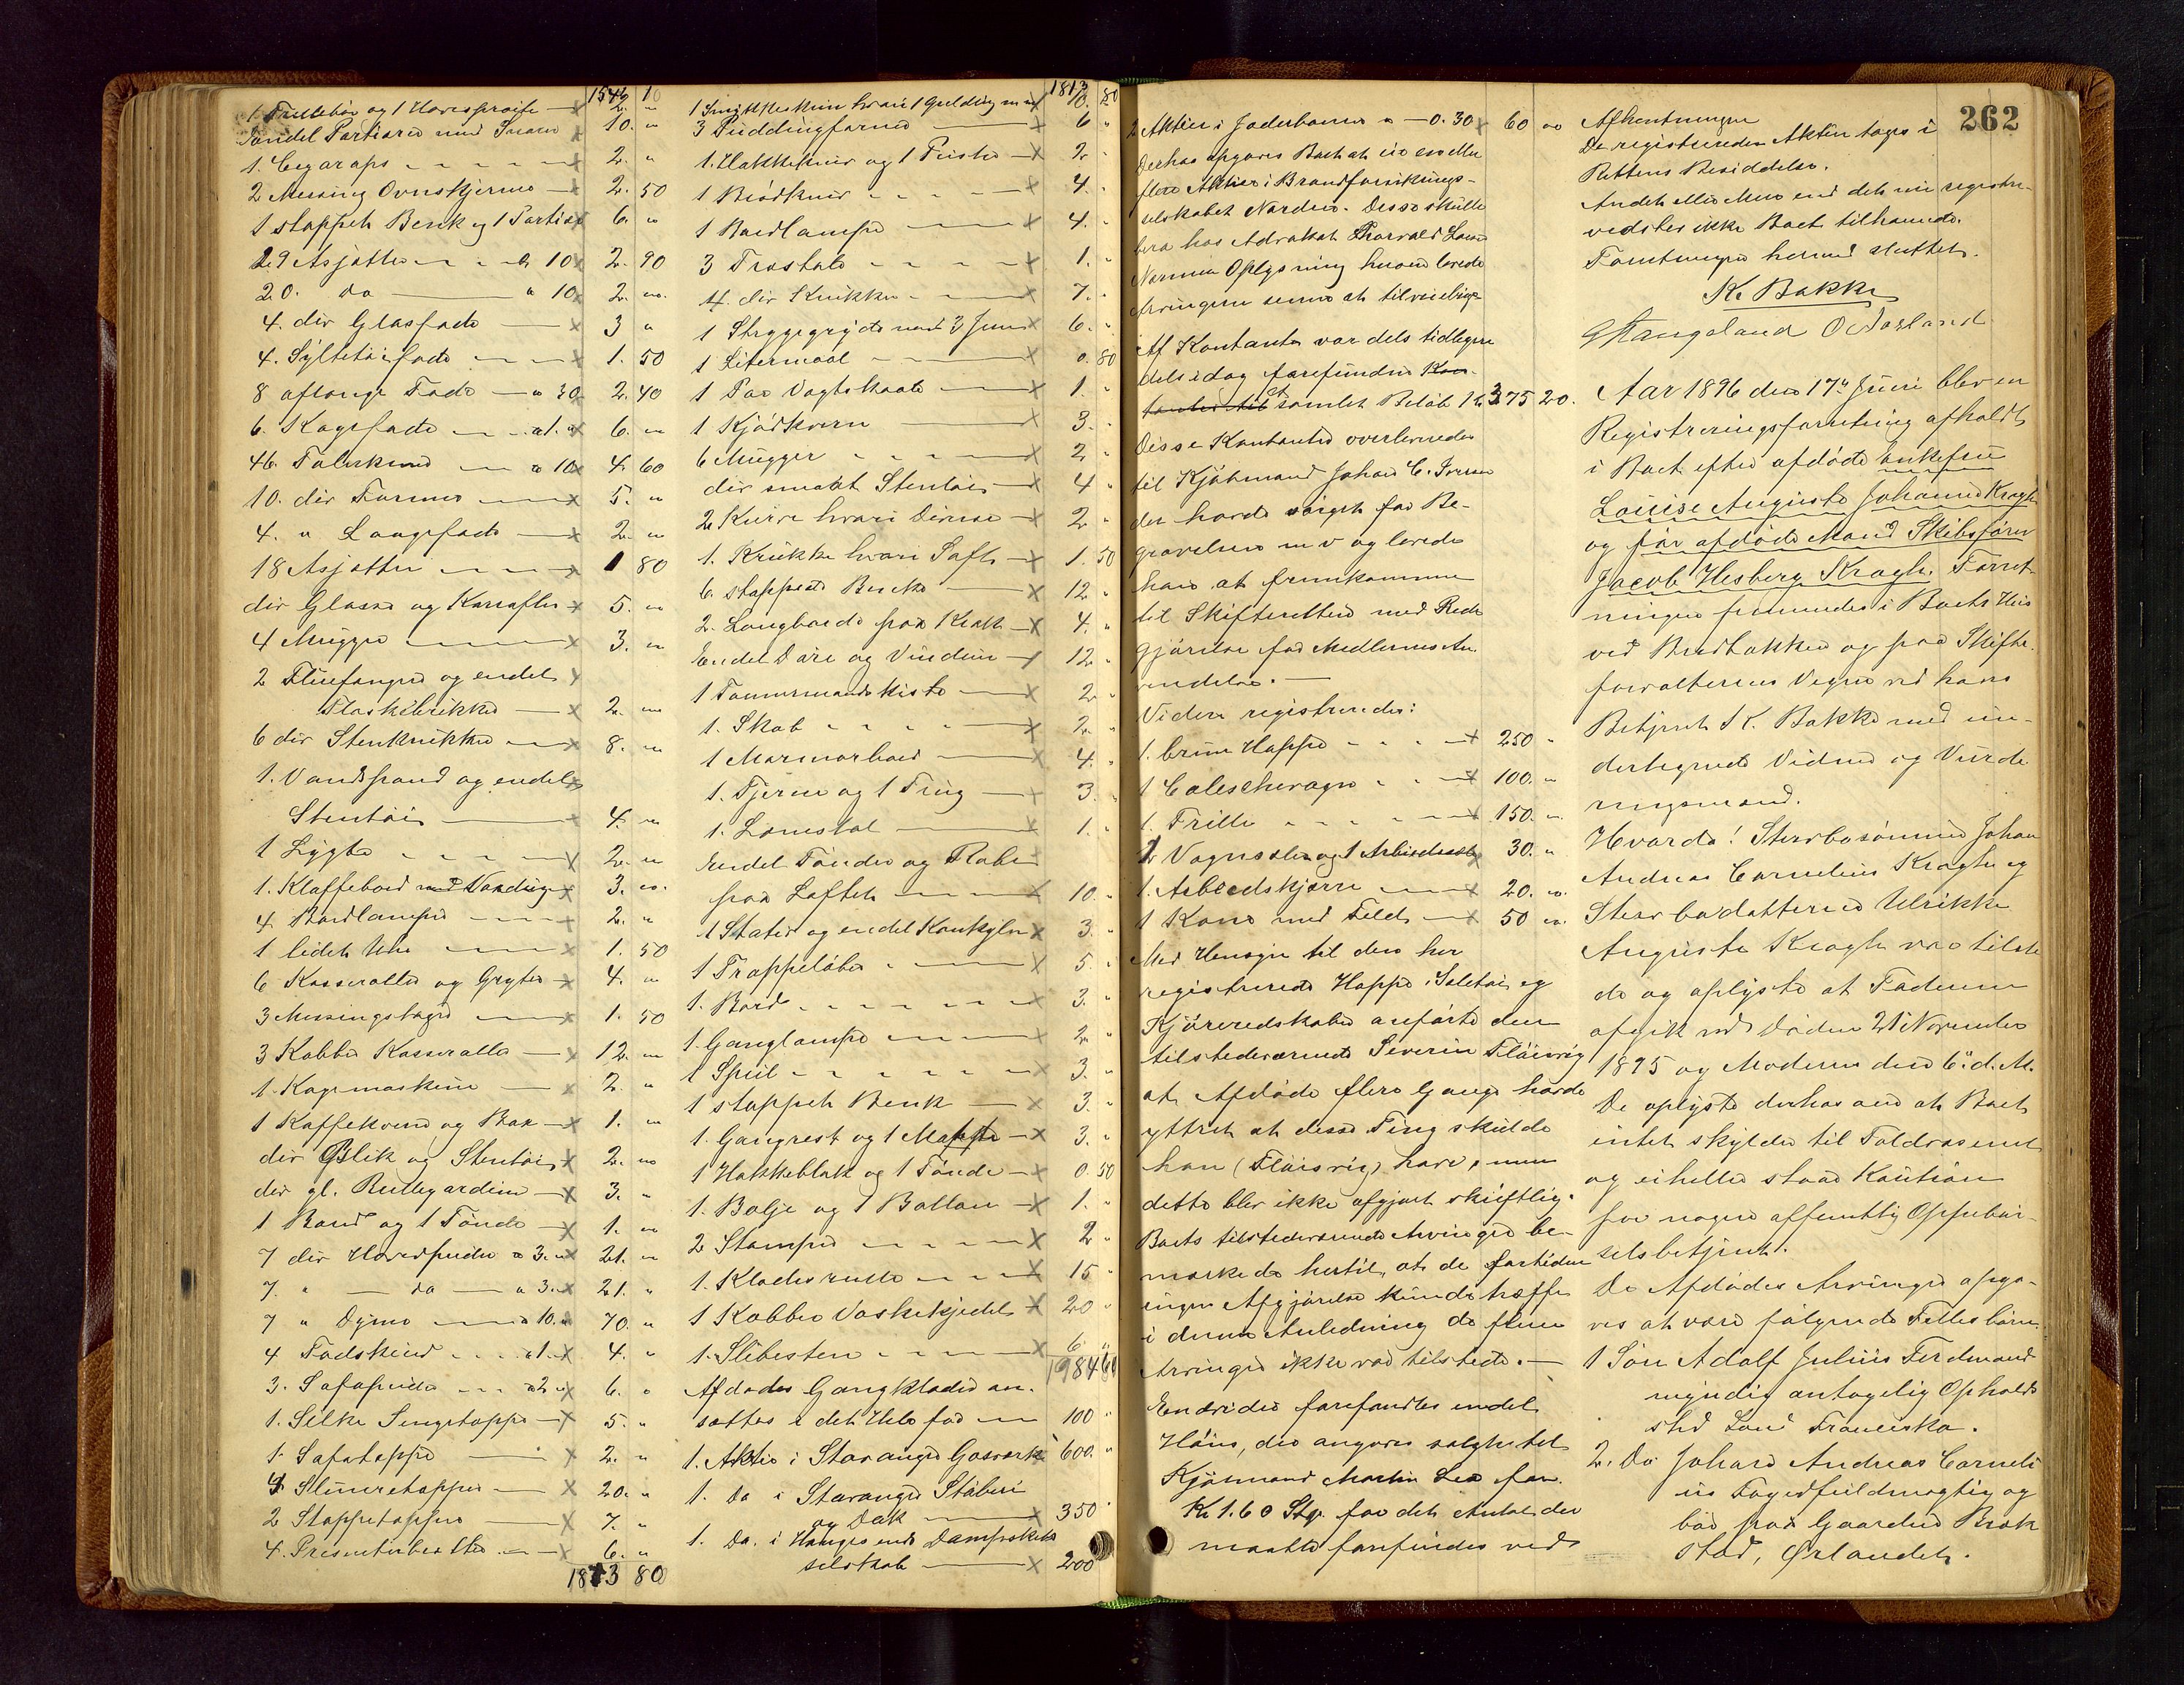 1546 10
1 Trillebör og 1 Havesprøite 2. "
Endel Portierer med Snorer 10. "
1. Cegaraps 2. "
2 Messing Ovnskjerme 2. 50
1 stoppet Benk og 1 Portier 6. "
29 Asjetter a 10 2. 90
20. do " 10 2. "
4. dir Glasfade 3 "
4. Syltetöifade 1. 50
8 aflange Fade a 30 2. 40
6. Kagefade a 1. " 6. "
46. Talerkener a 10 4. 60
10. dir Former 5. "
4. " Langefade 2. "
18 Asjetter 1 80
dir Glasse og Karafler 5. "
4 Mugger 3. "
2 Fluefangere og endel
Flaskebrikker 2. "
6 dir Stenkrukker 8. "
1. Vandspand og endel
Stentöi 4. "
1 Lygte 2. "
1. Klaffebord med Voxdug 3. "
4 Bordlamper 2. "
1 lidet Uhr 1. 50
6 Kasseroller og Gryter 4. "
3 Messingstager 1. 50
3 Kobber Kasseroller 12. "
1. Kagemaskine 2. "
1 Kaffekvern og Bøx 1. "
dir Blik og Stentöi 2. "
dir gl. Rullegardiner 3. "
1 Bord og 1 Tönde 1. "
7 dir Hovedpuder a 3. " 21. "
7. " — do — a 3. 21. "
7 " Dyner a 10. 70. "
4 Fodskind a 1. 4. "
3. Sofapuder a 2. 6. "
1. Silke Sengetæppe 5. "
1. Sofatæppe 2. "
4 Slumretæpper 20. "
2 Stoppetæpper 7. "
4. Presenterbretter 6. "
1813 80
1813 80
10. "
3 Puddingformer 6 "
1. Hakkekniv og 1 Rist 2. "
1 Brödkniv 4. "
1 Bordlampe 4. "
3 Træstole 1. "
4. dir Krukker 7. "
1 Steggegryde med 3 Jern 6. "
1 Litermaal 0. 80
1 Par Vægtskaale 1. "
1 Kjödkvern 3. "
6 Mugger 2 "
dir smaat Stentöi 4 "
2 Kurve hvori Diverse 2 "
1. Krukke hvori Saft 1. 50
6. stoppede Benke 12. "
2. Langborde paa Krakk 4. "
Endel Döre og Vinduer 12 "
1 Tömmermandskiste 2 "
1. Skab 2. "
1 Marmorbord 4. "
1. Tjerne og 1 Ting 3. "
1. Lænestol 1. "
Endel Tönder og Rabe
paa Loftet 10. "
1 Stativ og endel Konkylier 3. "
1 Trappelöber 5. "
1. Bord 3. "
1. Ganglampe 2. "
1 Speil 3. "
1 stoppet Benk 3. "
1. Gangrest og 1 Matte 3. "
1 Hakkeblok og 1 Tönde 0. 50
1. Balje og 1 Ballon 1. "
2 Stamper 2 "
1. Klæderulle 15 "
1 Kobber Vaskekjedel 20 "
1. Slibesten 6 "
1984 60
Afdødes Gangklæder an-
sættes i det Hele for 100 "
1. Aktie i Stavanger Gasværk 600. "
1. Do i Stavanger Støberi
og Dok 350 "
1. Do. i Haugesunds Dampskibs
selskab 200
262
2 Aktier i Jæderbanen a — 0. 30 60 "
Derhos opgaves Boet at eie en eller
flere Aktier i Brandforsikrings-
selskabet Norden. Disse skulle
bero hos Advokat Thorvald Lover
Nærmere Oplysning herom lovede
Arvingerne senere at tilveiebringe
Af Kontanter var dels tidligere
dels idag forefundne Kon-
tanter til Et samlet Beløb 1 375 20.
Disse Kontanter overleveredes
til Kjöbmand Johan C. Iversen
der havde sörget for Be-
gravelsen m v og lovede
han at fremkomme
til Skifteretten med Rede
gjörelse for Midlernes An-
vendelse. —
Videre registreredes:
1. brun Hoppe 250 "
1 Calescheragn 100. "
1. Trille 150. "
2 Vognseler og 1 Arbeidssele 30. "
1. Arbeidskjærre 20. "
1 Kane med Feld 50 "
Med Hensyn til den her
registrerede Hoppe, Seletöi og
Kjöreredskaber anförte den
tilstedeværende Severin Flöisvig
at Afdøde flere Gange havde
yttret at disse Ting skulde
han (Flöisvig) have, men
dette blev ikke afgjort skriftlig.
Boets tilstedeværende Arvinger be-
mærkede hertil, at de fortiden
ingen Afgjörelse kunde træffe
i denne Anledning da flere
Arvinger ikke var tilstede. —
Endvidere forefandtes endel
Höns, der angaves solgte til
Kjöbmand Martin Lea for
Kr 1. 60 Stp. for det Antal der
maatte forefindes ved
Afhentningen
De registrerede Aktier toges i
Rettens Besiddelse.
Andet eller Mere end det nu registre-
redes ikke Boet tilhørende.
Forretningen hermed sluttet.
K. Bakke
G Stangeland O Varland
Aar 1896 den 17 Juni blev en
Registreringsforretning afholdt
i Boet efter afdøde Enkefru
Louise Auguste Johanne Kragh
og för afdøde Mand Skibsfører
Jacob Hesberg Kragh. Forret-
ningen fremmedes i Boets Hus
ved Bredbakken og paa Skifte-
forvalterens Vegne ved hans
Betjent K. Bakke med un-
dertegnede Vidner og Vurde
ringsmænd.
Hvorda! Stervbosönnen Johan
Andreas Cornelius Kragh og
Stervbodatteren Ulrikke
Auguste Kragh var tilste
de og oplyste at Faderen
afgik ved Döden 21 November
1895 og Moderen den 6. d. M.
De oplyste derhos at Boet
intet skylder til Toldvæsenet
og eiheller staar Kaution
for nogen offentlig Oppebør-
selsbetjent.
De Afdødes Arvinger opga-
ves at være følgende Fellesbörn
1 Sön Adolf Julius Ferdinand
myndig antagelig Opholds
sted San Francisko.
2. Do Johan Andreas Corneli
us Fogedfuldmægtig og
bor paa Gaarden Bræk
stad, Ørlandet.